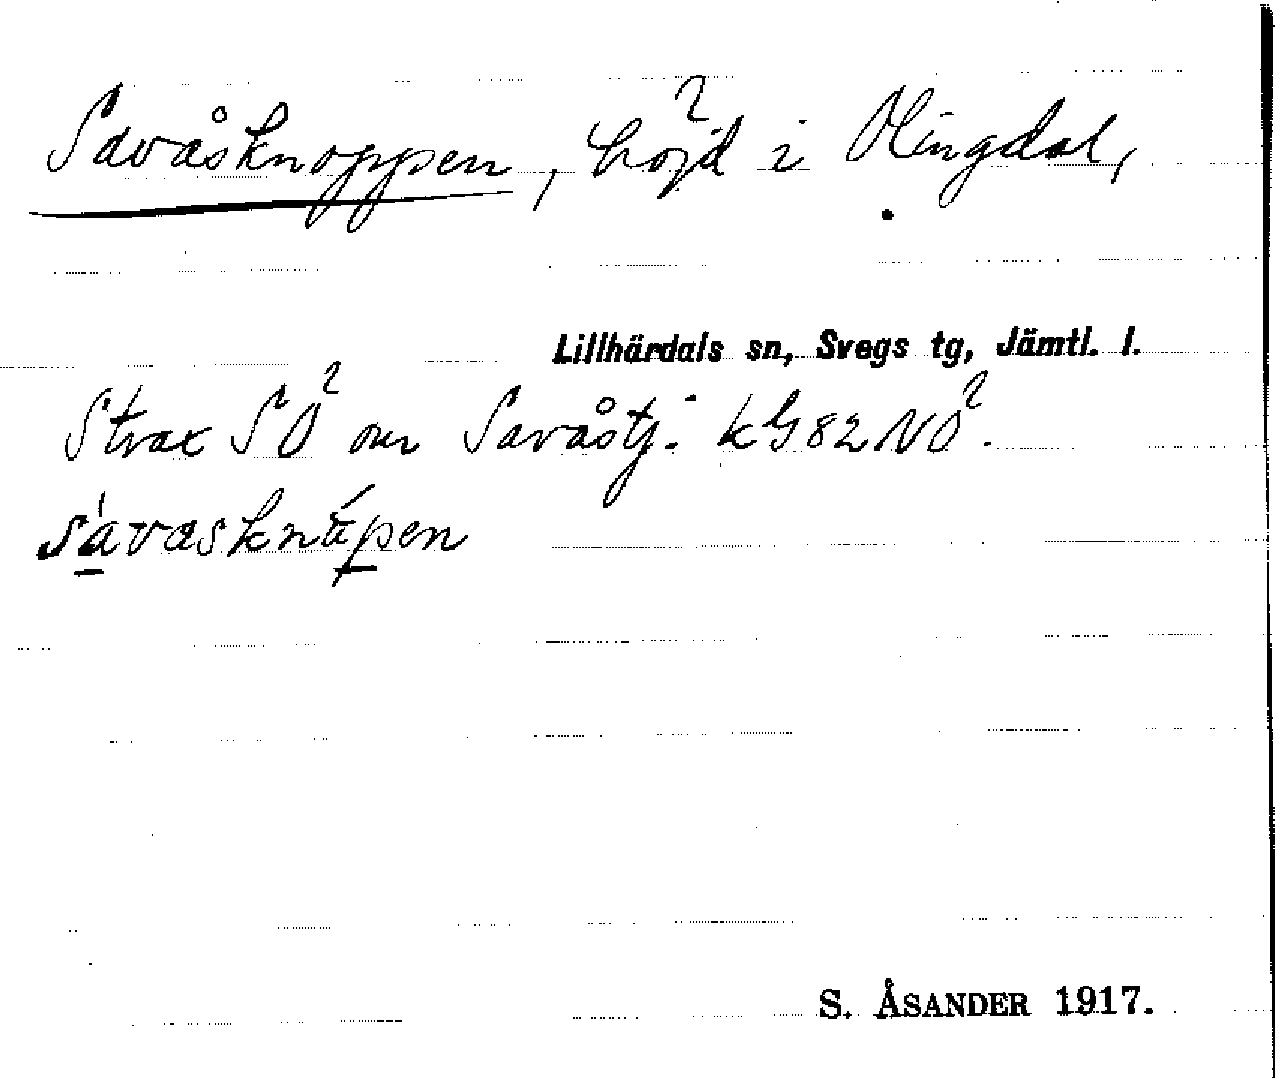 Savåsknoppen, höjd i Olingdal,
Lillhärdals sn, Svegs tg, Jämtl. l.
Strax SÖ om Savåstj. kG82NÖ.
S. ÅSANDER 1917.